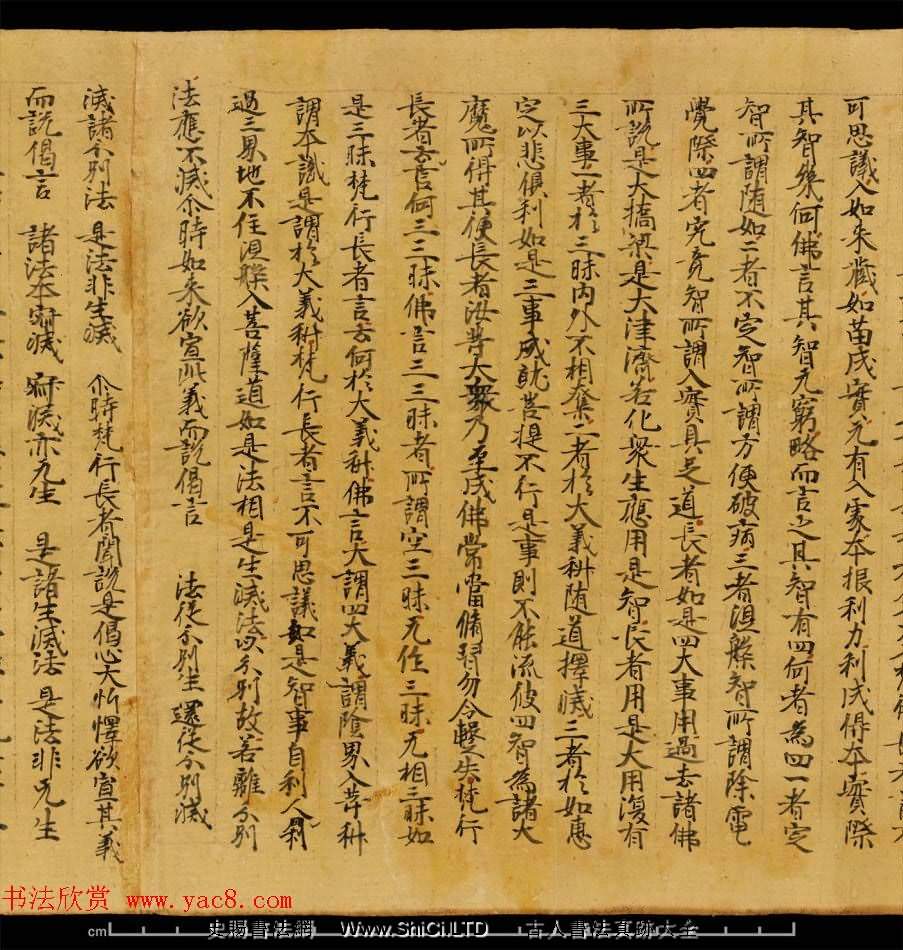 可思議入如来藏如苗成實无有入處本根利力利成得本實際
其智幾何佛言其智无窮略而言之其智有四何者為四一者定
智所謂随如二者不定智所謂方便破病三者涅槃智所謂除電
覺際四者究竟智所謂入實具足道長者如是四大事用過去諸佛
所說是大橋梁是大津濟若化衆生應用是智長者用是大用復有
三大事一者於三昧内外不相奪二者於大義科随道擇滅三者於如惠
定以悲俱利如是三事成就菩提不行是事則不能流彼四智為諸大
魔所得其便長者汝等大衆乃至成佛常當脩習勿令暫失梵行
長者言云何三三昧佛言三三昧者所謂空三昧无作三昧无相三昧如
是三昧梵行長者言云何於大義科佛言大謂四大義謂陰界入等科
謂本識是謂於大義科梵行長者言不可思議如是智事自利人利
過三界地不住涅槃入菩薩道如是法相是生滅法以分别故若離分别
法應不滅尒時如来欲宣此義而說偈言 法從分别生 還從分别滅
滅諸分别法 是法非生滅 尒時梵行長者聞說是偈心大忻懌欲宣其義
而說偈言 諸法本寂滅 寂滅亦无生 是諸生滅法 是法非无生
书法欣赏
www.yac8.com
cm
史賜書法網 www.ShiCi.LTD 古人書法真跡大全